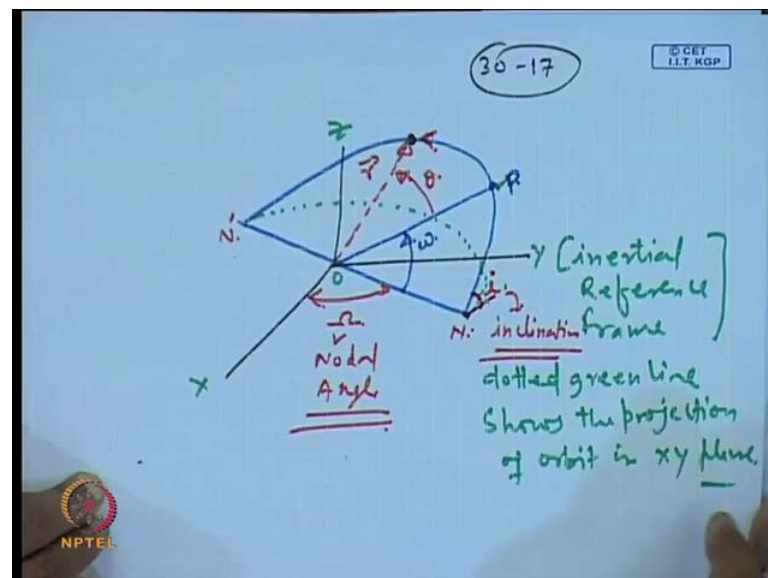 30-17
© CET
I.I.T. KGP
Z
r
θ
P
N'
ω
O
Y [inertial
Reference
frame
i
N: inclination
Ω
Nodal
Angle
X
dotted green line
shows the projection
of orbit in xy plane
NPTEL